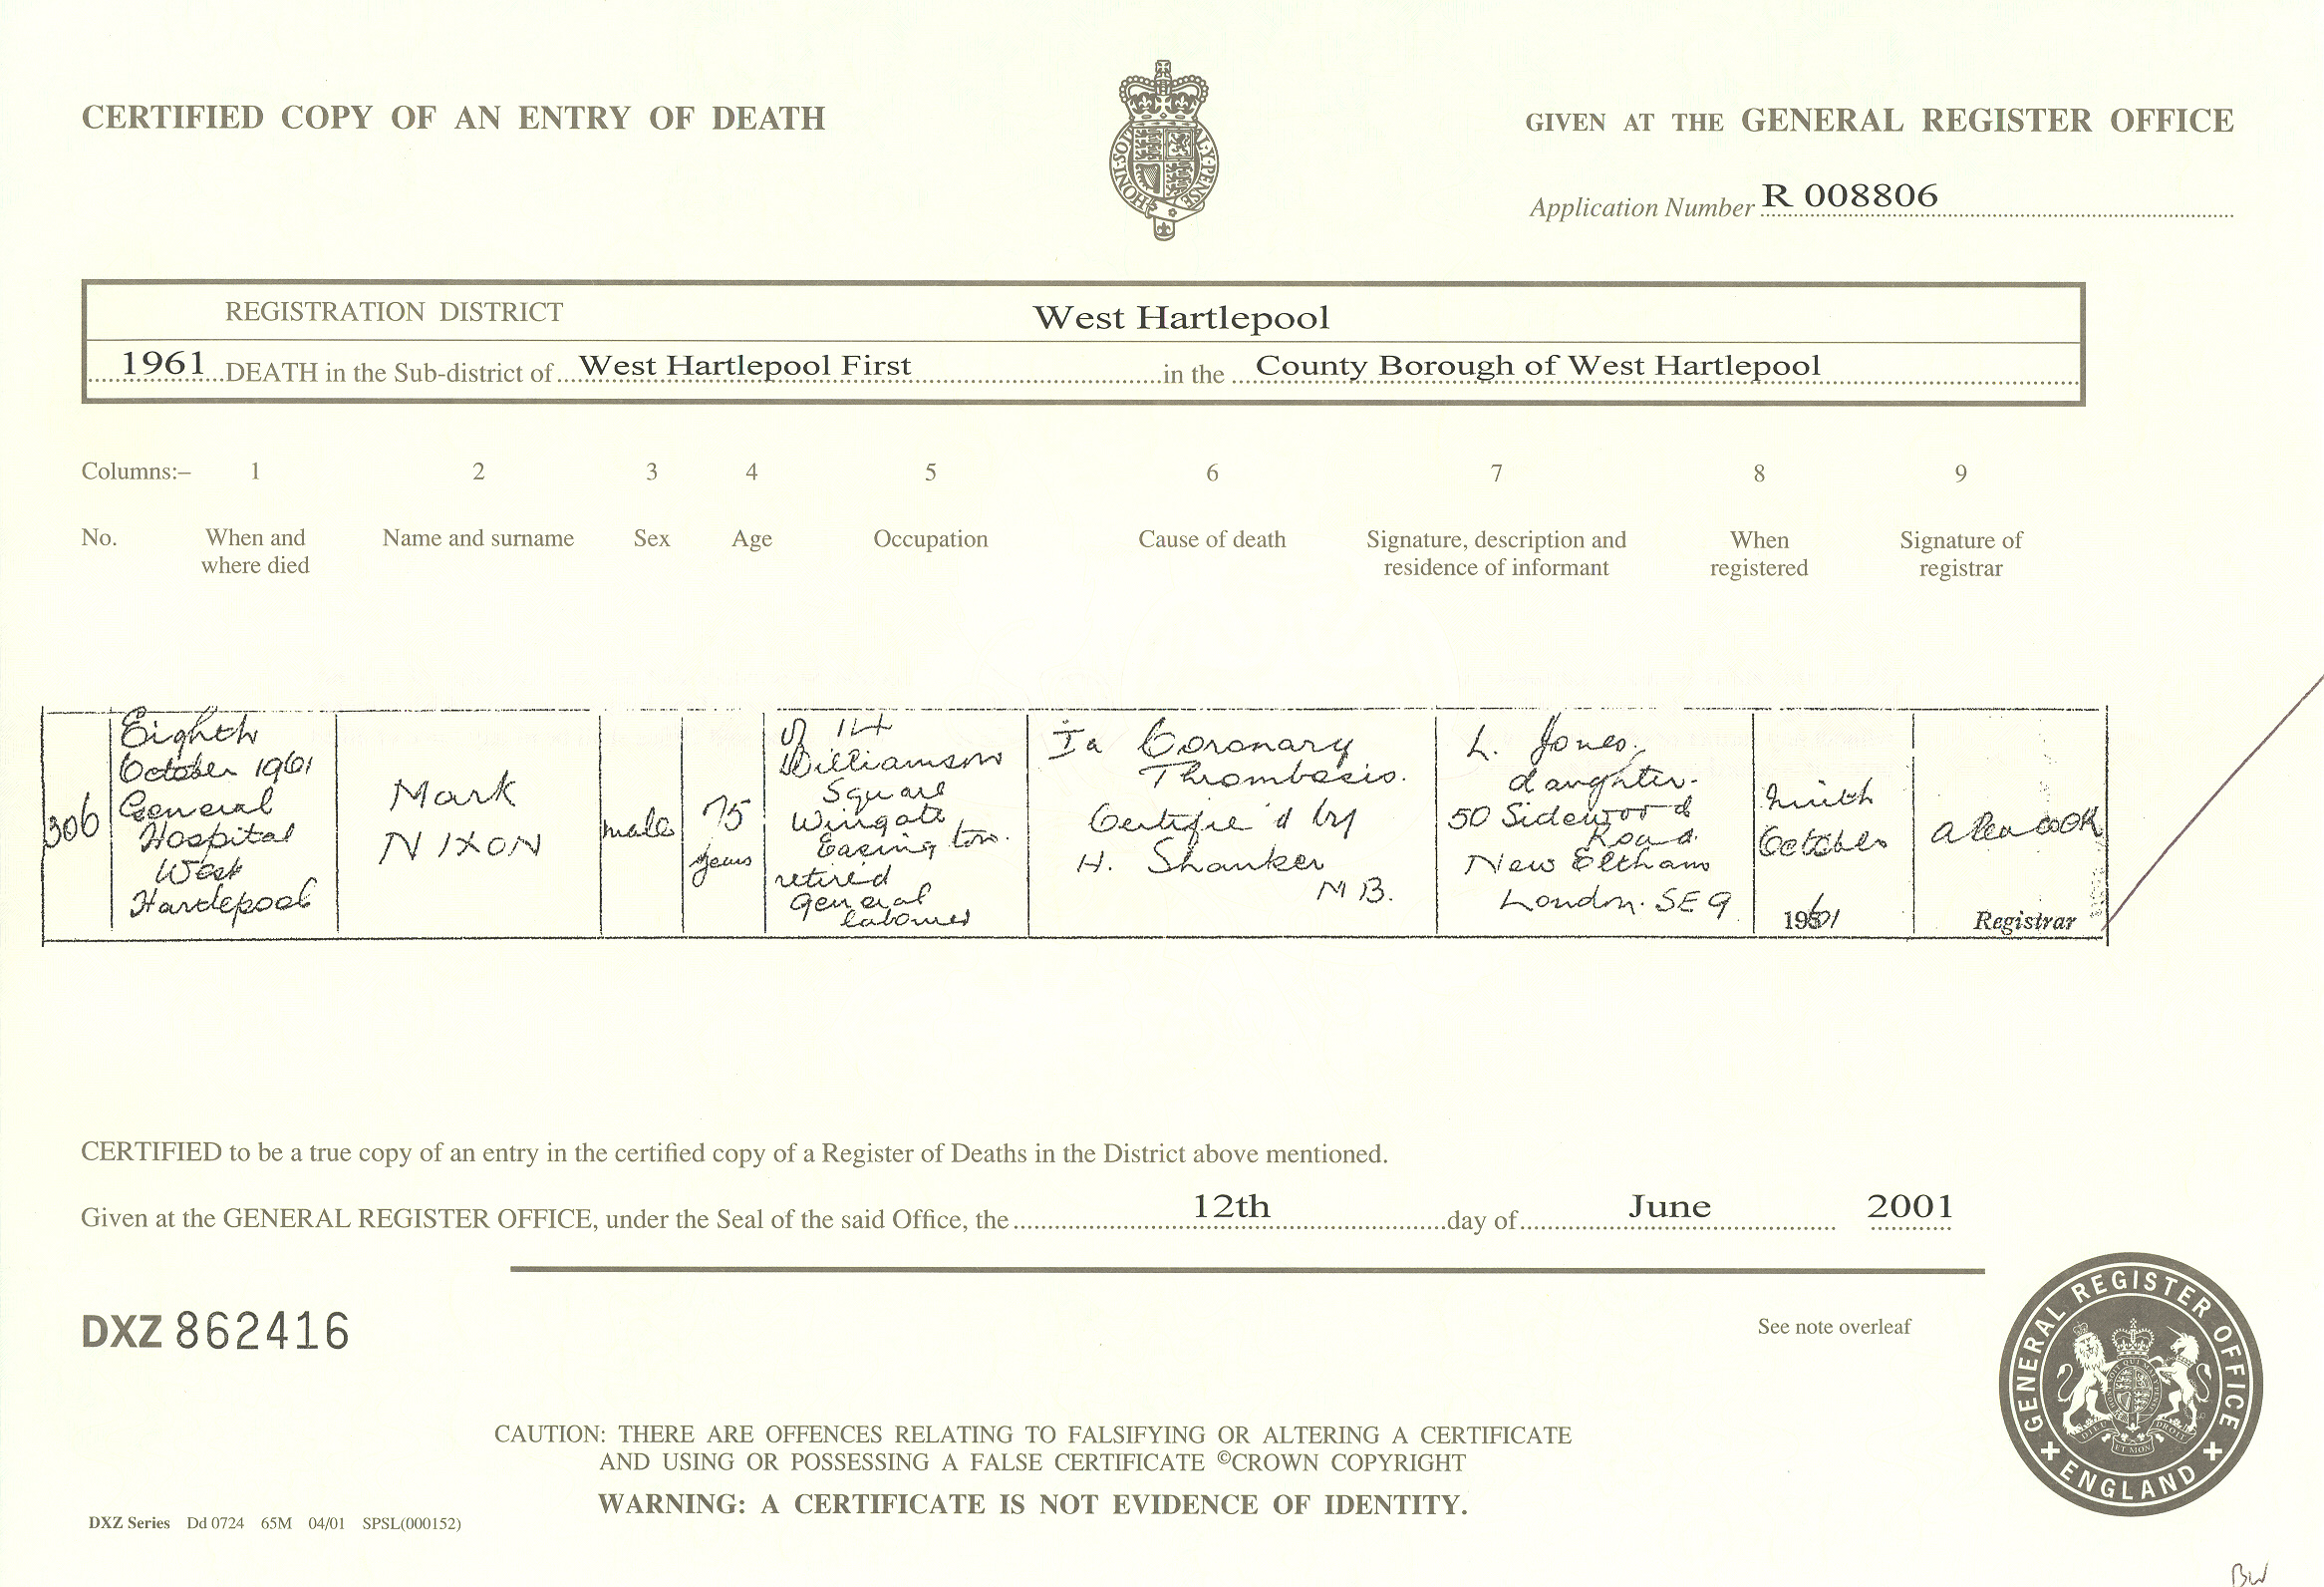 CERTIFIED COPY OF AN ENTRY OF DEATH
HONI·SOI
·Y·PENSE
GIVEN AT THE GENERAL REGISTER OFFICE
Application Number R 008806
REGISTRATION DISTRICT West Hartlepool
1961 DEATH in the Sub-district of West Hartlepool First in the County Borough of West Hartlepool
Columns:– 1 2 3 4 5 6 7 8 9
No.
When and
where died
Name and surname
Sex
Age
Occupation
Cause of death
Signature, description and
residence of informant
When
registered
Signature of
registrar
306
Eighth
October 1961
General
Hospital
West
Hartlepool
Mark
NIXON
male
75
years
of 14
Williamson
Square
Wingate
Easington.
retired
general
labourer
Ia Coronary
Thrombosis.
Certified by
H. Shanker
M B.
L. Jones.
daughter.
50 Sidewood
Road
New Eltham
London. SE9
Ninth
October
1961
A Peacock
Registrar
CERTIFIED to be a true copy of an entry in the certified copy of a Register of Deaths in the District above mentioned.
Given at the GENERAL REGISTER OFFICE, under the Seal of the said Office, the 12th day of June 2001
DXZ 862416
See note overleaf
GENERAL REGISTER OFFICE
ENGLAND
CAUTION: THERE ARE OFFENCES RELATING TO FALSIFYING OR ALTERING A CERTIFICATE
AND USING OR POSSESSING A FALSE CERTIFICATE ©CROWN COPYRIGHT
WARNING: A CERTIFICATE IS NOT EVIDENCE OF IDENTITY.
DXZ Series Dd 0724 65M 04/01 SPSL(000152)
BW